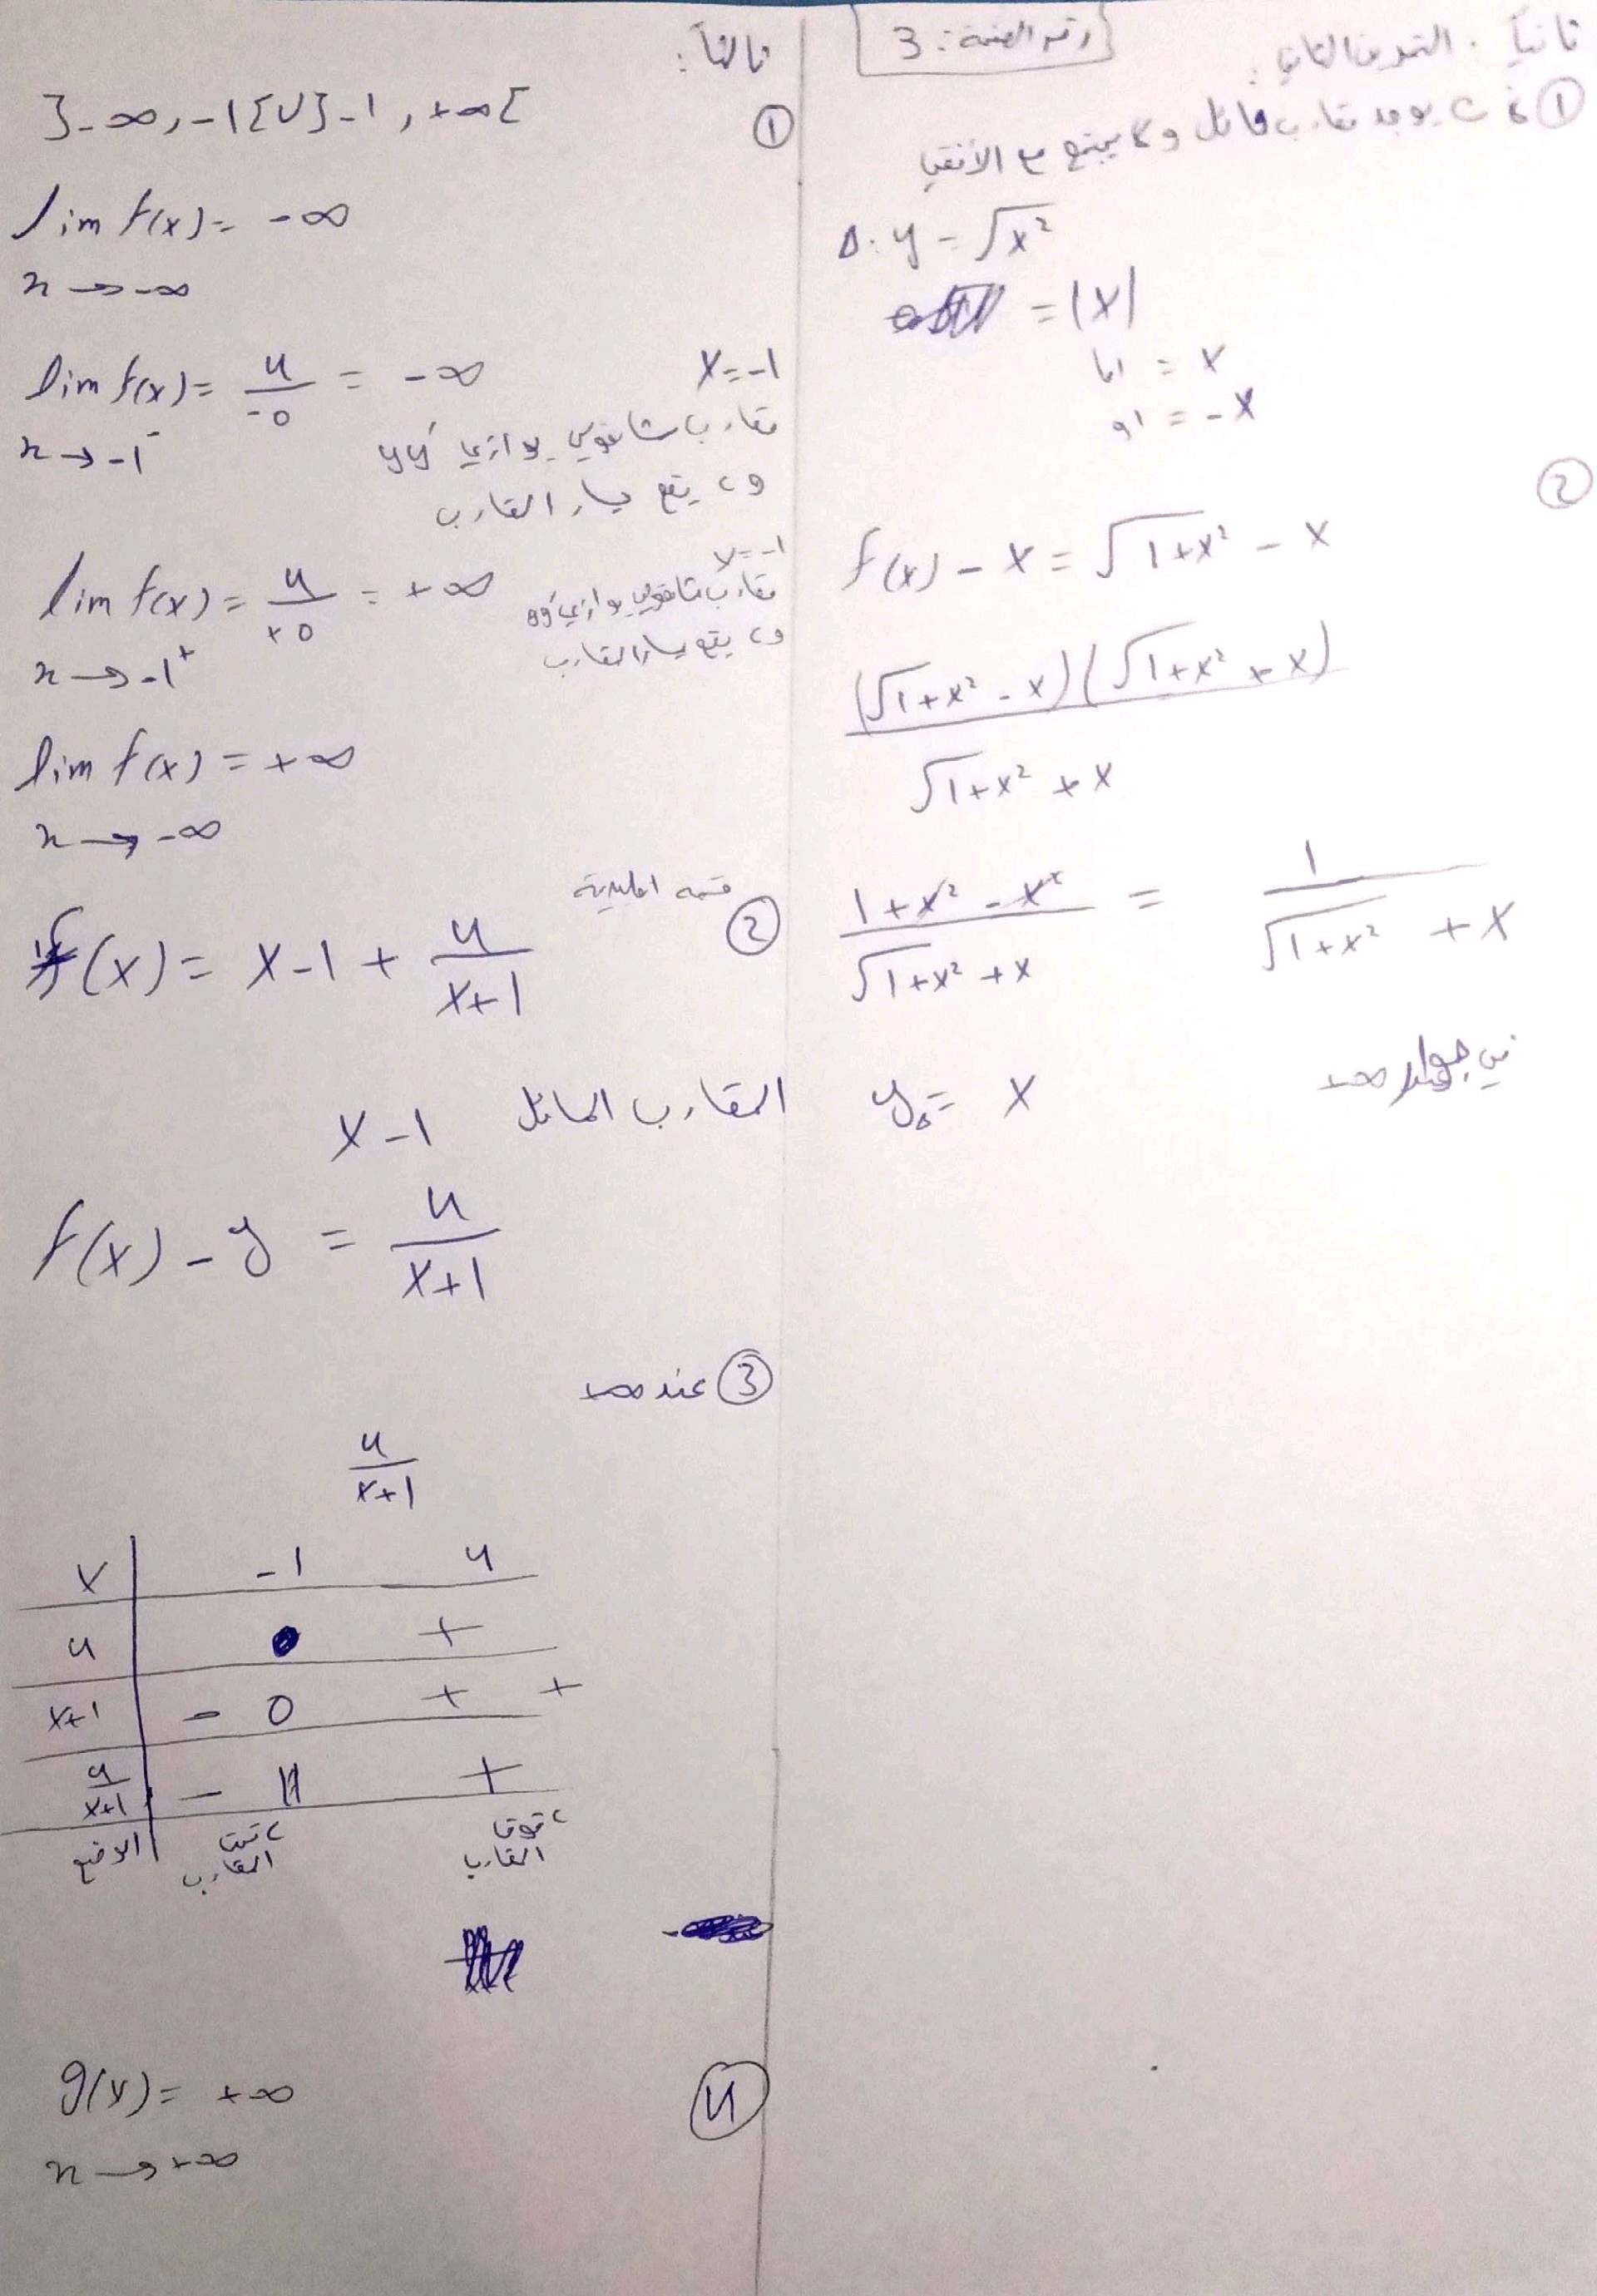 رقم الصفحة: 3
ثانياً. التمرين الثاني:
① لا يوجد مقارب مائل ولا يجتمع مع الأفقي
Δ: y = √x²
= |x|
اما = x
او = -x
②
f(x) - x = √1+x² - x
(√1+x² - x)(√1+x² + x)
√1+x² + x
1+x² - x² = 1
√1+x² + x √1+x² + x
في جوار +∞
yΔ = x
ثالثاً:
① ]-∞, -1[ U ]-1, +∞[
lim f(x) = -∞
x → -∞
lim f(x) = 4/-0 = -∞ x = -1
x → -1⁻ مقارب شاقولي يوازي yy'
و c يقع يسار المقارب
lim f(x) = 4/+0 = +∞ x = -1
مقارب شاقولي يوازي yy'
x → -1⁺ و c يقع يسار المقارب
lim f(x) = +∞
x → -∞
② قسمة اقليدية
f(x) = x - 1 + 4/x+1
المقارب المائل x - 1
f(x) - y = 4/x+1
③ عند +∞
4/x+1
x -1 4
4 +
x+1 - 0 + +
4/x+1 - || +
الوضع c تحت المقارب c فوق المقارب
④
g(x) = +∞
x → +∞